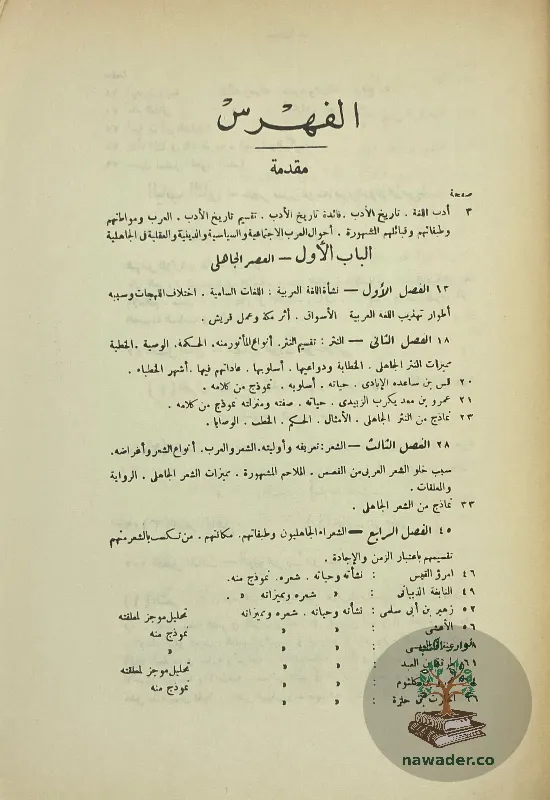 الفهرس
مقدمة
صفحة
٣ أدب اللغة . تاريخ الأدب . فائدة تاريخ الأدب . تقسيم تاريخ الأدب . العرب ومواطنهم
وطبقاتهم وقبائلهم الشهورة . أحوال العرب الاجتماعية والسياسية والدينية والعقلية فى الجاهلية
الباب الأول — العصر الجاهلى
١٣ الفصل الأول — نشأة اللغة العربية : اللغات السامية . اختلاف اللهجات وسببه
أطوار تهذيب اللغة العربية الأسواق . أثر مكة وعمل قريش .
١٨ الفصل الثانى — النثر : تقسيم النثر . أنواع المأثور منه . الحكمة . الوصية . الخطبة
مميزات النثر الجاهلى . الخطابة ودواعيها . أسلوبها . عاداتهم فيها . أشهر الخطباء .
٢٠ قس بن ساعده الإيادى . حياته . أسلوبه . نموذج من كلامه .
٢١ عمرو بن معد يكرب الزبيدى . حياته . صفته ومنزلته نموذج من كلامه .
٢٣ نماذج من النثر الجاهلى . الأمثال . الحكم . الخطب . الوصايا .
٢٨ الفصل الثالث — الشعر : تعريفه وأوليته . الشعر والعرب . أنواع الشعر وأغراضه .
سبب خلو الشعر العربى من القصص . الملاحم المشهورة . مميزات الشعر الجاهلى . الرواية
والمعلقات .
٣٣ نماذج من الشعر الجاهلى .
٤٥ الفصل الرابع — الشعراء الجاهليون وطبقاتهم . مكانتهم . من تكسب بالشعر منهم
تقسيمهم باعتبار الزمن والإجادة .
٤٦ امرؤ القيس : نشأته وحياته . شعره . نموذج منه .
٤٩ النابغة الذبيانى : « شعره وميزاته « .
٥٢ زهير بن أبى سلمى : نشأته وحياته . شعره وميزاته تحليل موجز لمعلقته
٥٦ الأعشى : « « نموذج منه
: « « «
العبد : « « تحليل موجز لمعلقته
كلثوم : « « نموذج منه
بن حلزة : « «
نوادر الكتب
nawader.co